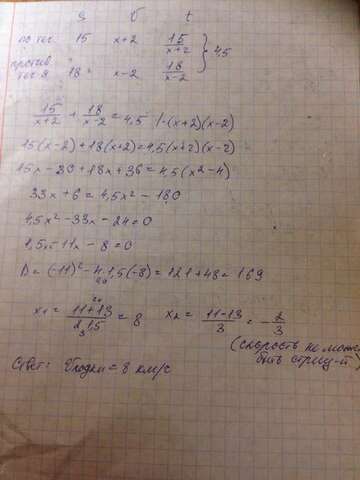 S V t
по теч. 15 x+2 15/(x+2)
против теч-я 18 x-2 18/(x-2) } 4,5
15/(x+2) + 18/(x-2) = 4,5 |·(x+2)(x-2)
15(x-2)+18(x+2)=4,5(x+2)(x-2)
15x-30+18x+36=4,5(x²-4)
33x+6=4,5x²-18
4,5x²-33x-24=0
1,5x²-11x-8=0
D=(-11)²-4·1,5(-8)=121+48=169
x₁= (11+13)/(2·1,5) = 8 x₂= (11-13)/3 = -2/3
(скорость не может
быть отриц-й)
Ответ: Vлодки=8 км/с